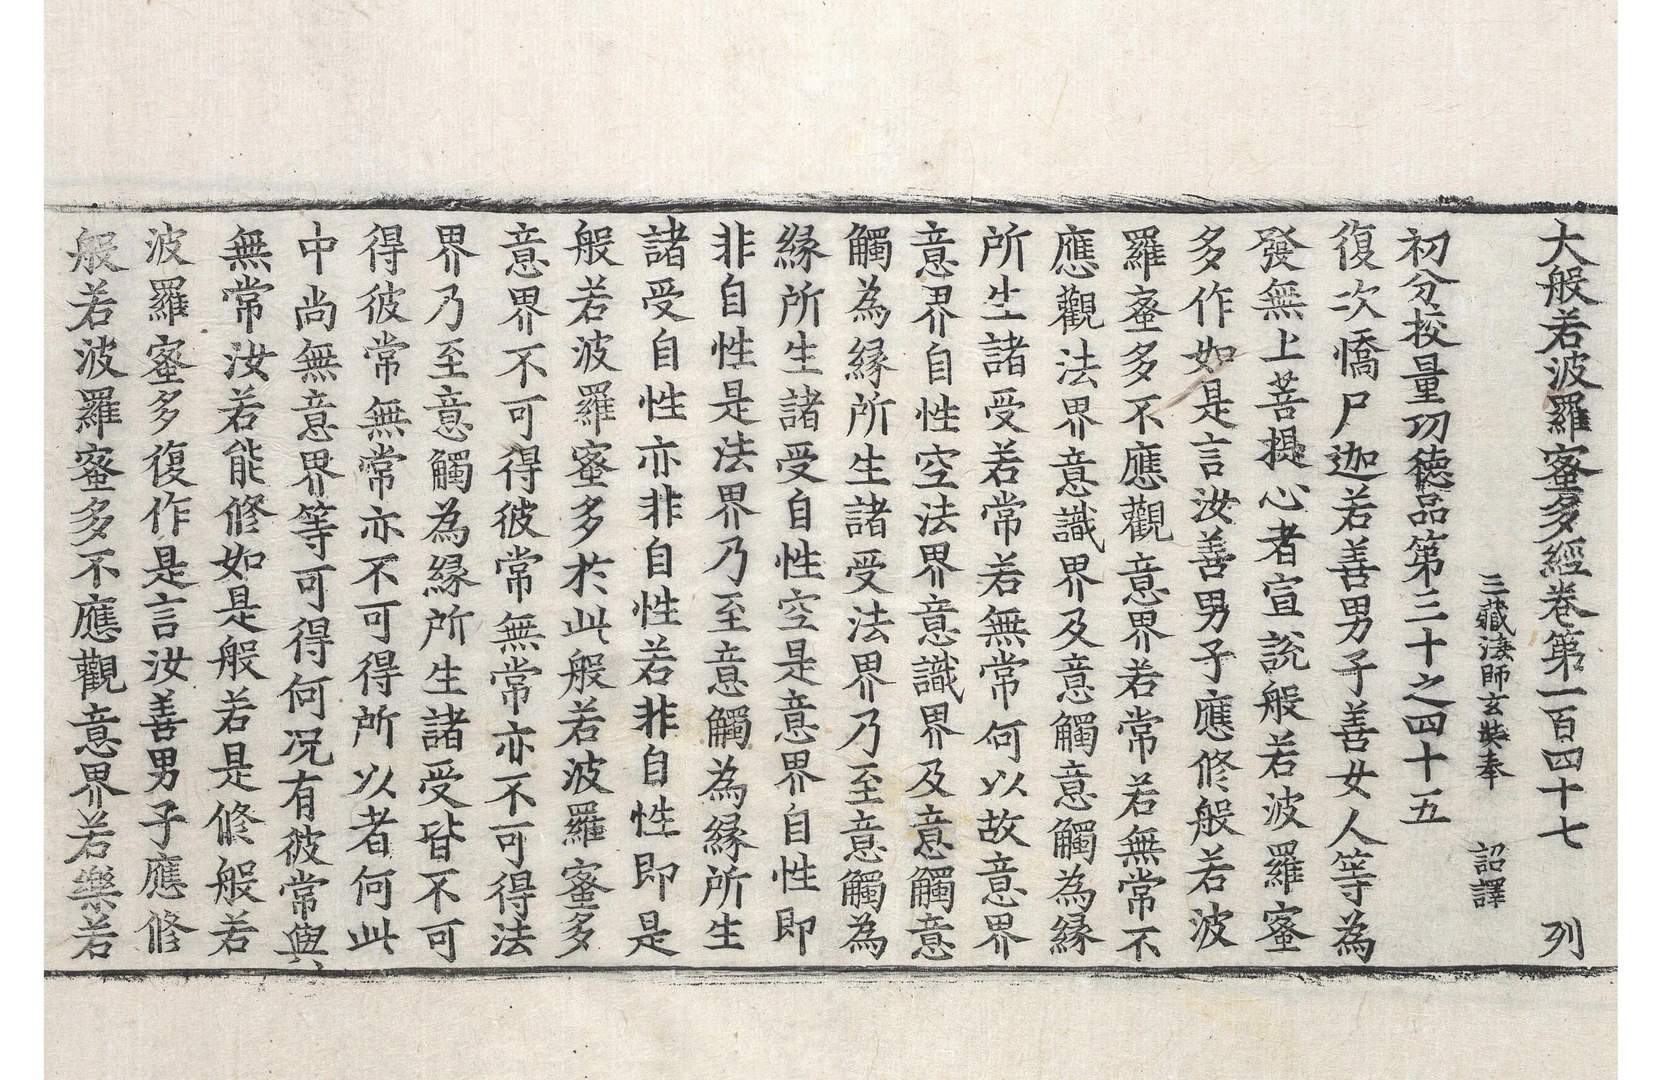 大般若波羅蜜多經卷第一百四十七　列
三藏法師玄奘奉　詔譯
初分校量功德品第三十之四十五
復次憍尸迦若善男子善女人等為
發無上菩提心者宣說般若波羅蜜
多作如是言汝善男子應修般若波
羅蜜多不應觀意界若常若無常不
應觀法界意識界及意觸意觸為緣
所生諸受若常若無常何以故意界
意界自性空法界意識界及意觸意
觸為緣所生諸受法界乃至意觸為
緣所生諸受自性空是意界自性即
非自性是法界乃至意觸為緣所生
諸受自性亦非自性若非自性即是
般若波羅蜜多於此般若波羅蜜多
意界不可得彼常無常亦不可得法
界乃至意觸為緣所生諸受皆不可
得彼常無常亦不可得所以者何此
中尚無意界等可得何況有彼常與
無常汝若能修如是般若是修般若
波羅蜜多復作是言汝善男子應修
般若波羅蜜多不應觀意界若樂若